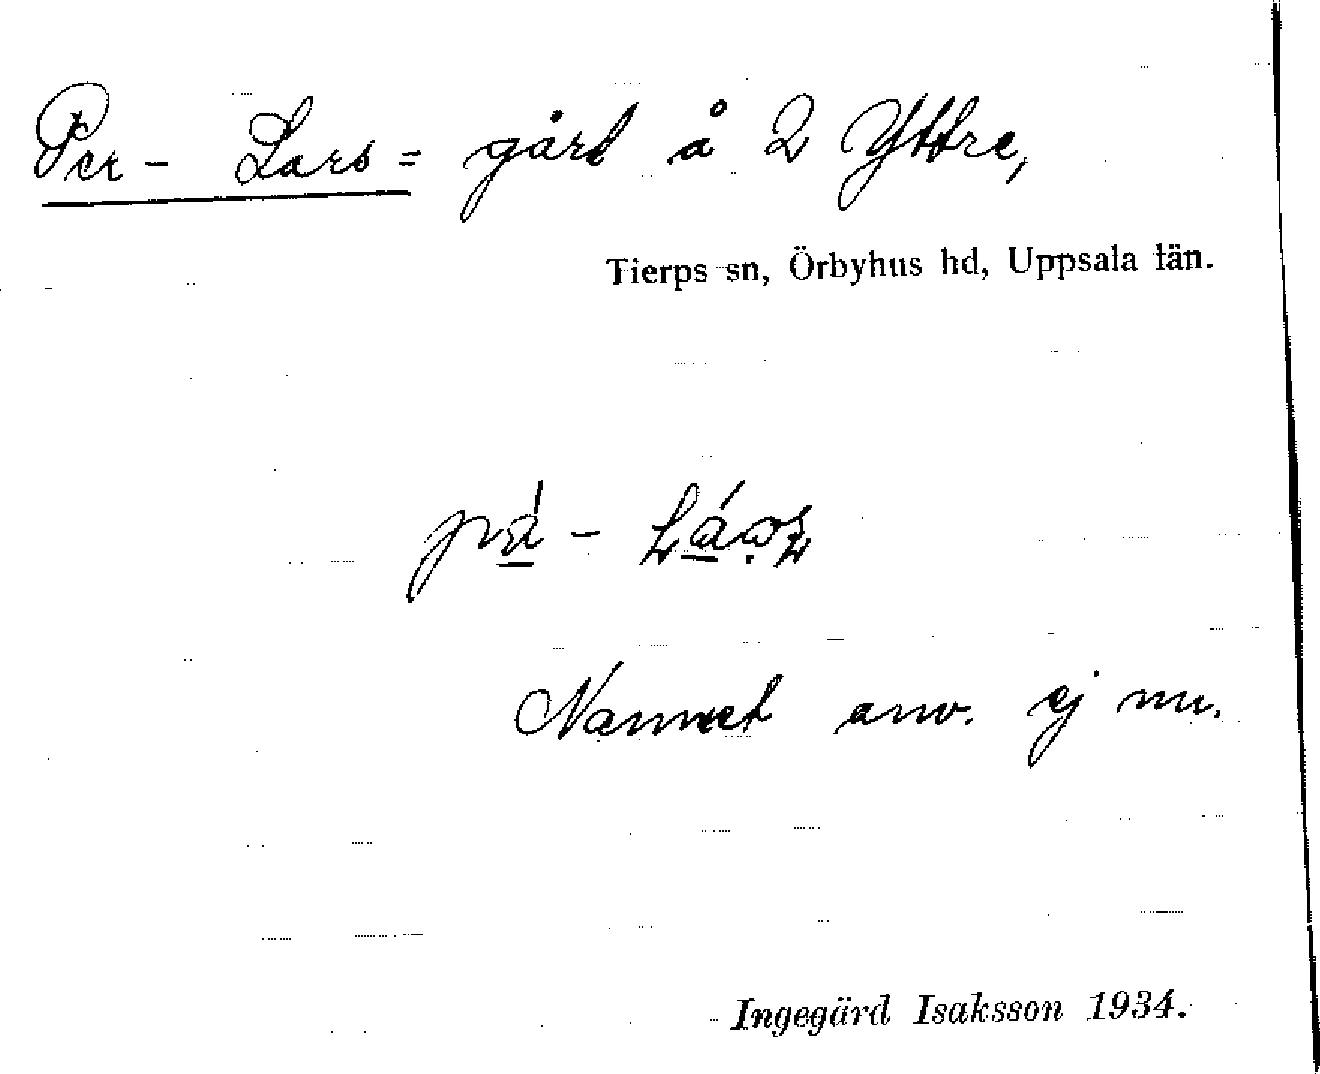 Per - Lars = gård å 2 Yttre,
Tierps sn, Örbyhus hd, Uppsala län.
Namnet anv. ej nu.
Ingegärd Isaksson 1934.